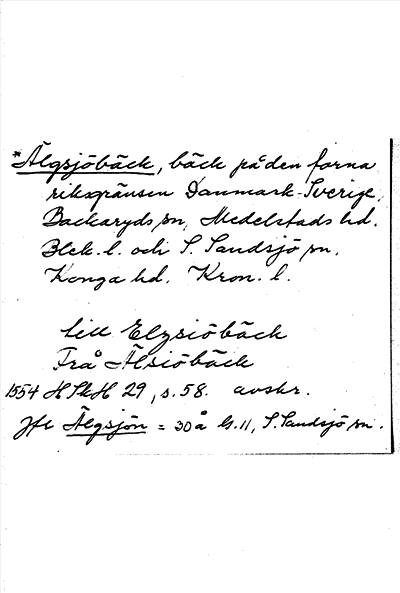 *Älgsjöbäck, bäck på den forna
riksgränsen Danmark-Sverige,
Backaryds sn, Medelstads hd.
Blek. l. och S. Sandsjö sn.
Konga hd. Kron. l.
till Elgsiöbäck
Frå Älsiöbäck
1554 HSkH 29, s. 58. avskr.
Jfr Älgsjön = 30 å G. 11, S. Sandsjö sn.